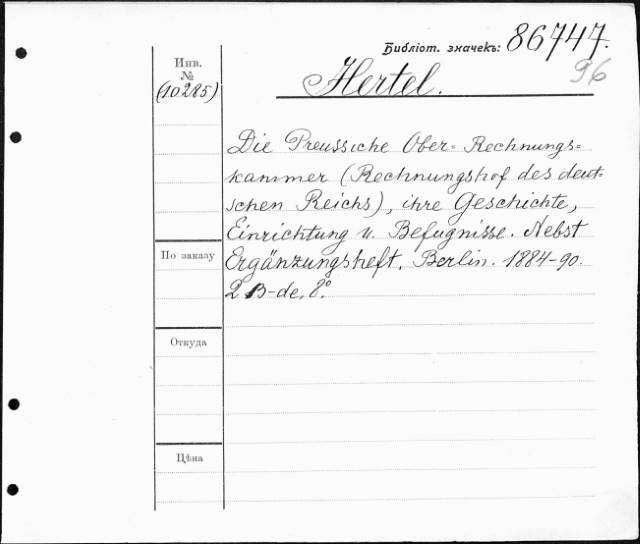 Библіот. значекъ: 86747.
96
Инв.
№
(10285)
Hertel.
Die Preussiche Ober-Rechnungs-
kammer (Rechnungshof des deut-
schen Reichs), ihre Geschichte,
Einrichtung u. Befugnisse. Nebst
Ergänzungsheft. Berlin. 1884-90.
2 B-de. 8°.
По заказу
Откуда
Цѣна